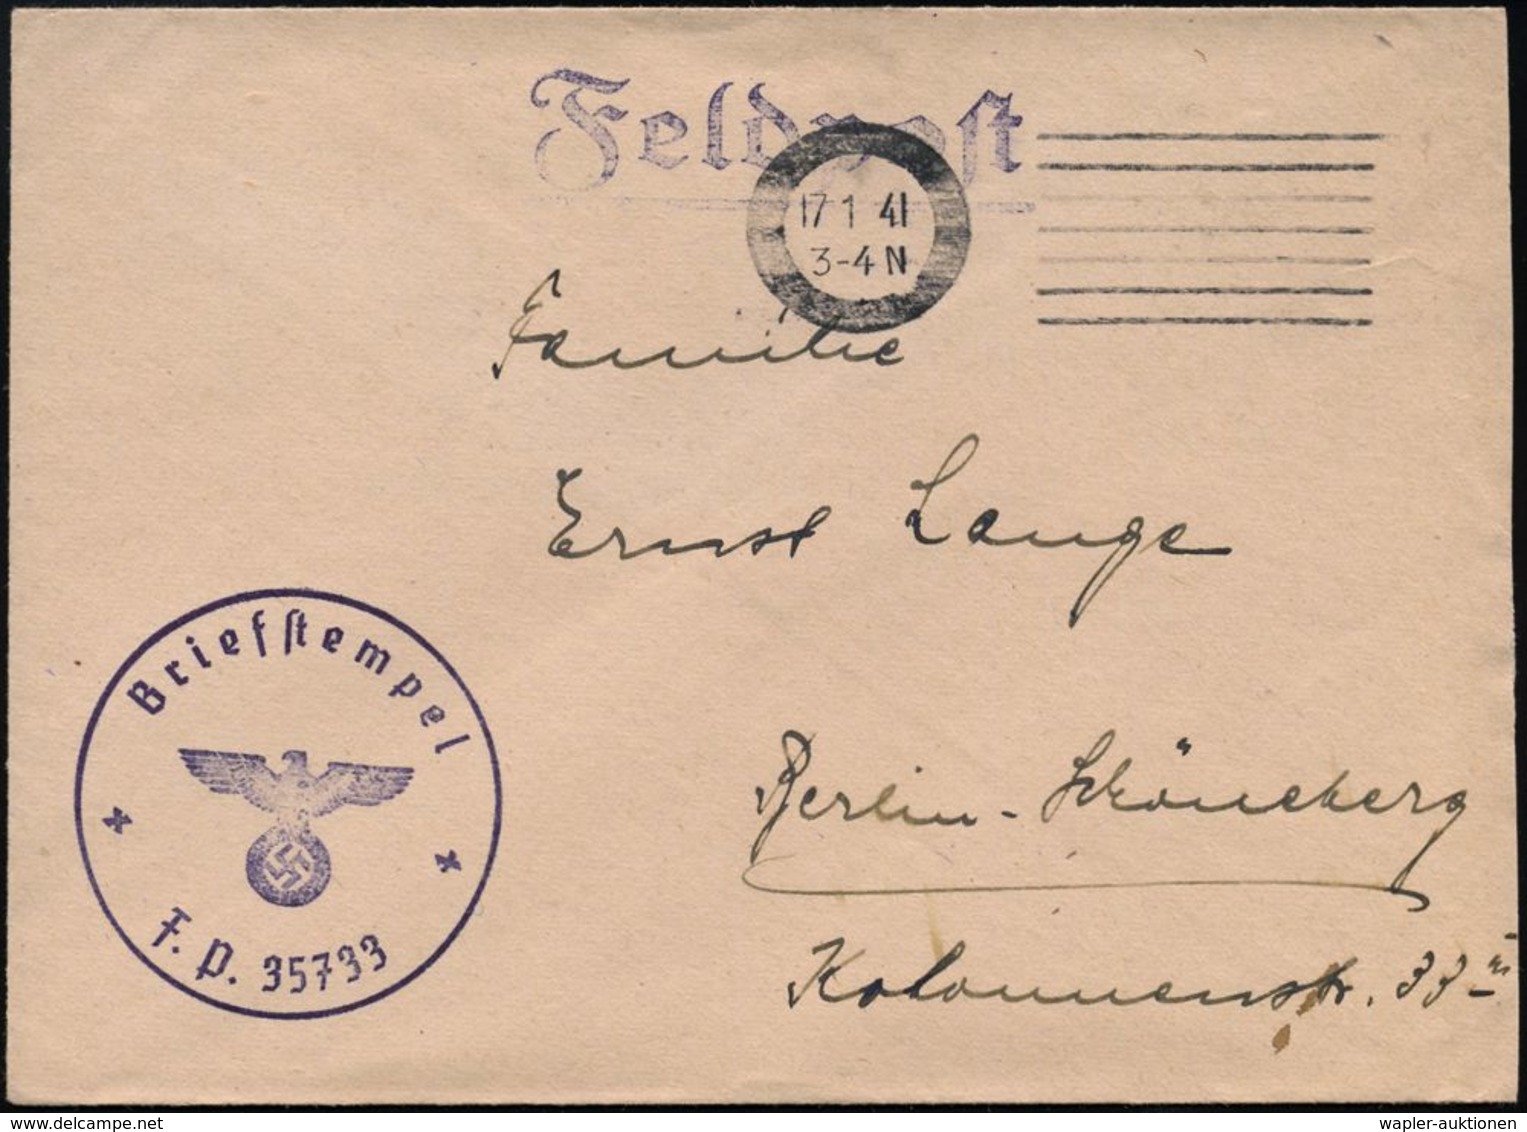 Feldpost
17 1 41
3-4 N
Familie
Ernst Lange
Berlin-Schöneberg
Kolonnenstr. 33 III
Briefstempel
F. P. 35733
delcampe.net
wapler-auktionen